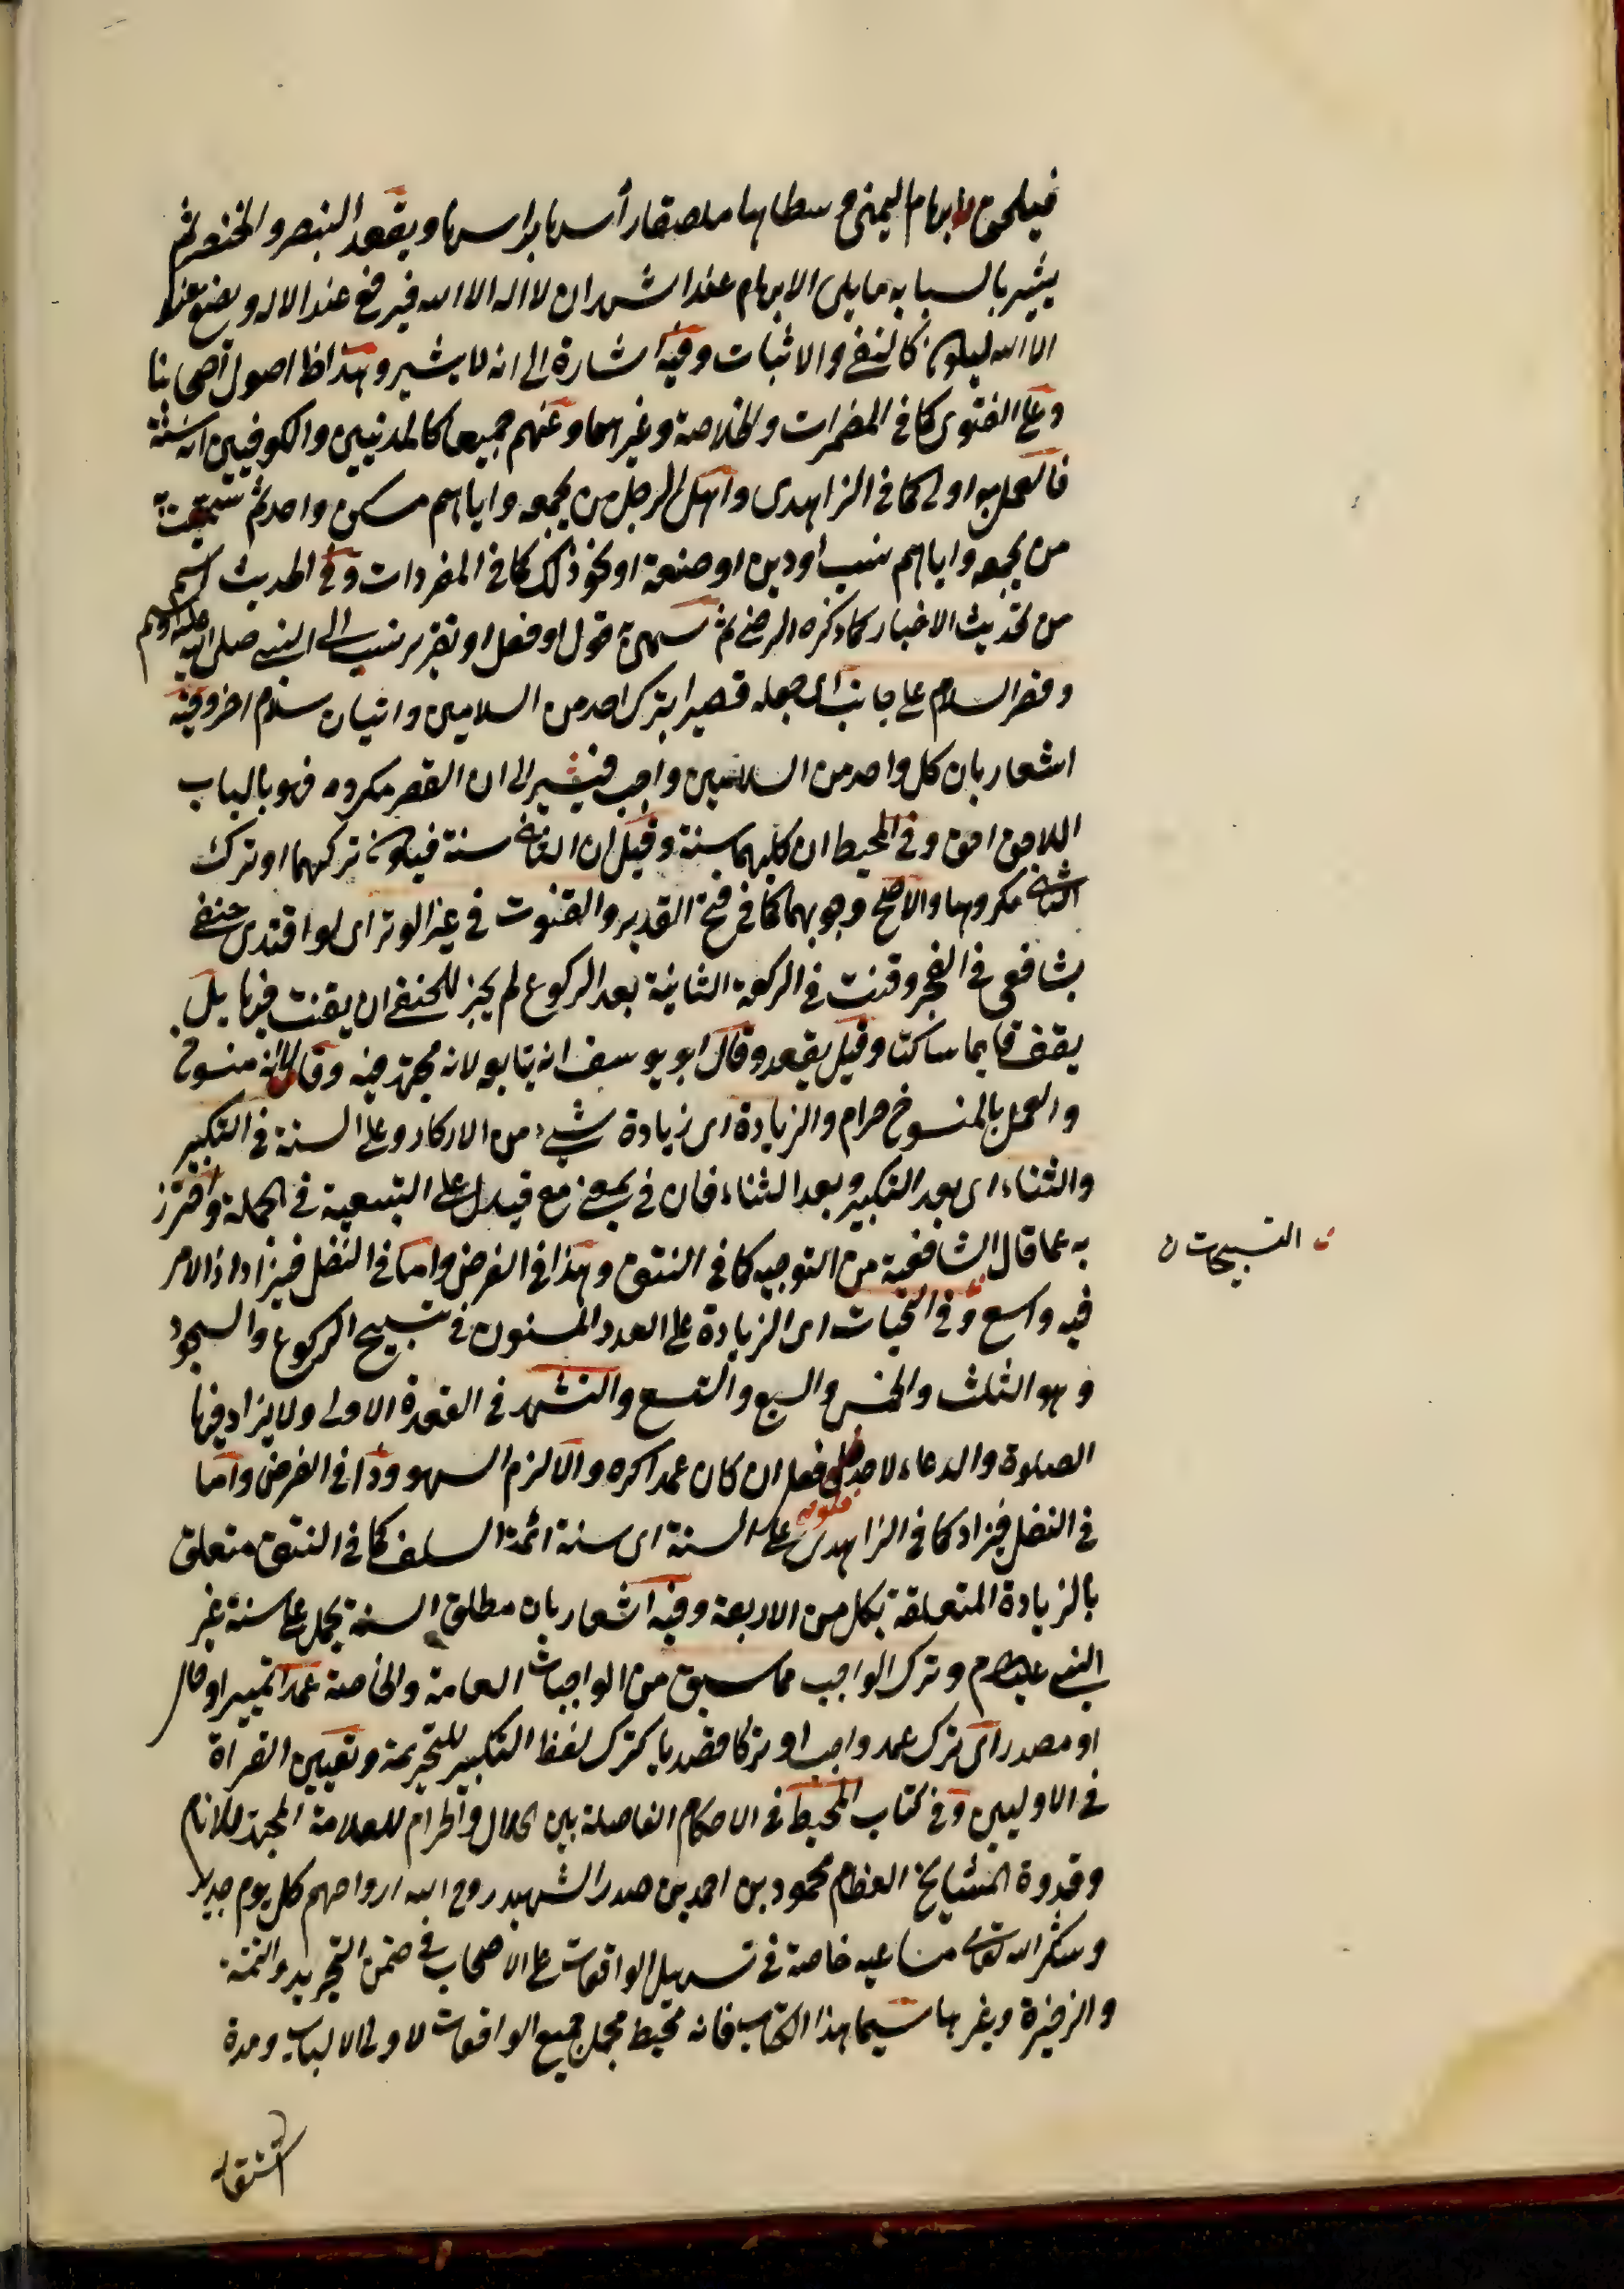 فيحلق ابهام اليمنى وسطاها ملصقا رأسها برأسها ويعقد البنصر والخنصر ثم
يشير بالسبابة مايلى الابهام عند اشهد ان لا اله الا الله فيرفع عند لا اله ويضع عند
الا الله ليكون كالنفى والاثبات وفيه اشارة الى انه لا يشير وهذا ظ اصول اصحابنا
وعلى الفتوى كما فى المضمرات والخلاصة وغيرهما وعنهم جميعا كالمدنيين والكوفيين انه سنة
فالعمل به اولى كما فى الزاهدى واهل الرجل من يجمعه واياهم مسكن واحد ثم سميت به
من يجمعه واياهم نسب او دين او صنعة او نحو ذلك كما فى المفردات وفى الحديث اسم
من تحديث الاخبار كما ذكره الرضى ثم سمى به قول او فعل او تقرير نسب الى النبى صلى الله عليه وسلم
وقصر السلام على جانب اى جعله قصيرا بترك احد من السلامين واتيان سلام اخر وفيه
اشعار بان كل واحد من السلامين واجب فيشير الى ان القصر مكروه فهو بالباب
اللاحق احق وفى المحيط ان كليهما سنة وقيل ان الثانى سنة فيكون تركهما او ترك
الثانى مكروها والاصح وجوبهما كما فى فتح القدير والقنوت فى غير الوتر اى لو اقتدى حنفى
بشافعى فى الفجر وقنت فى الركعة الثانية بعد الركوع لم يجز للحنفى ان يقنت فيها بل
يقف قايما ساكتا وقيل يقعد وقال ابو يوسف انه يتابعه لانه مجتهد فيه وقالا انه منسوخ
والعمل بالمنسوخ حرام والزيادة اى زيادة شىء من الاذكار وعلى السنة فى التكبير
والثناء اى بعد التكبير وبعد الثناء فان فى بمعنى مع فيدل على التبعية فى الجملة واحترز
به عما قال الشافعية من التوجيه كما فى النتف وهذا فى الفرض واما فى النفل فيزاد اذ الامر
فيه واسع وفى التحيات اى الزيادة على العدد المسنون فى تسبيح الركوع والسجود
وهو الثلث والخمس والسبع والتسع والتشهد فى القعدة الاولى ولا يزاد فيها
الصلوة والدعاء لاحد فلو فعل ان كان عمدا كره والا لزم السهو وذا فى الفرض واما
فى النفل فيزاد كما فى الزاهدى على السنة اى سنة ائمة السلف كما فى النتف متعلق
بالزيادة المتعلقة بكل من الاربعة وفيه اشعار بان مطلق السنة يحمل على سنة غير
النبى عليه السلام وترك الواجب مما سبق من الواجبات العامة والخاصة عمدا تمييز او حال
او مصدر اى ترك عمد واجب او تركا قصديا كترك لفظ التكبير للتحريمة وتعيين القرأة
فى الاوليين وفى كتاب المحيط فى الاحكام الفاصلة بين الحلال والحرام للعلامة المجتهد للانام
وقدوة المشايخ العظام محمود بن احمد بن صدر الشهيد روح الله ارواحهم كل يوم جديد
وشكر الله تعالى مساعيه خاصة فى تسهيل الواقعات على الاصحاب فى ضمن التجريد والتتمة
والذخيرة وغيرها سيما هذا الكتاب فانه محيط بجمل جميع الواقعات لاولى الالباب ومدة
ن التسبيحات ن